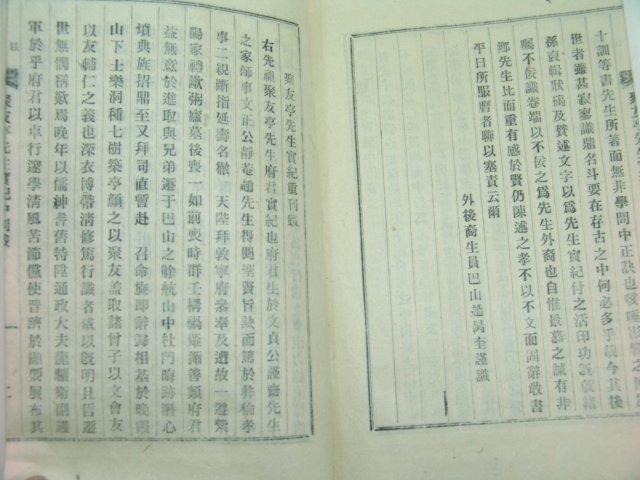 十訓等書先生所著而無非學問中正訣也
世者雖甚寂寥識鼎名斗要在存古之中何必多乎哉今其
孫裒輯狀碣及贊述文字以爲先生實紀付之活印功
囑不佞識卷端以不佞之爲先生外裔也自惟景慕之誠有非
鄉先生比而重有感於賢仍陳述之孝不以不文而固辭敢書
平日所服膺者聊以塞責云爾
外後裔生員巴山趙昺奎謹識
聚友亭先生實紀重刊跋
右先祖聚友亭先生府君實紀也府君生於文貞公謹齋先生
之家師事文正公靜菴趙先生得聞聖賢旨訣而篤於彝倫孝
事二親斷指延壽名徹 天陛拜敦寧府參奉及遭故一遵紫
陽家禮歠粥廬墓後喪一如前喪時群壬構禍
善類府君
益無意於進取與兄弟遯于巴山之餘航山中杜門晦跡潛心
墳典族招鼎至又拜司直暫赴 召命旋即辭歸相基於晚霞
山下士樂洞種七樹築亭顏之以聚友盖取諸曾子以文會友
以友輔仁之義也深衣博帶清修篤行識者咸以旣明且哲遯
世無憫稱歎焉晚年以儒紳耆舊特陞通政大夫龍驤衛副護
軍於乎府君以卓行邃學清風苦節儻使晋濟於顯要展布其
聚友亭先生實紀